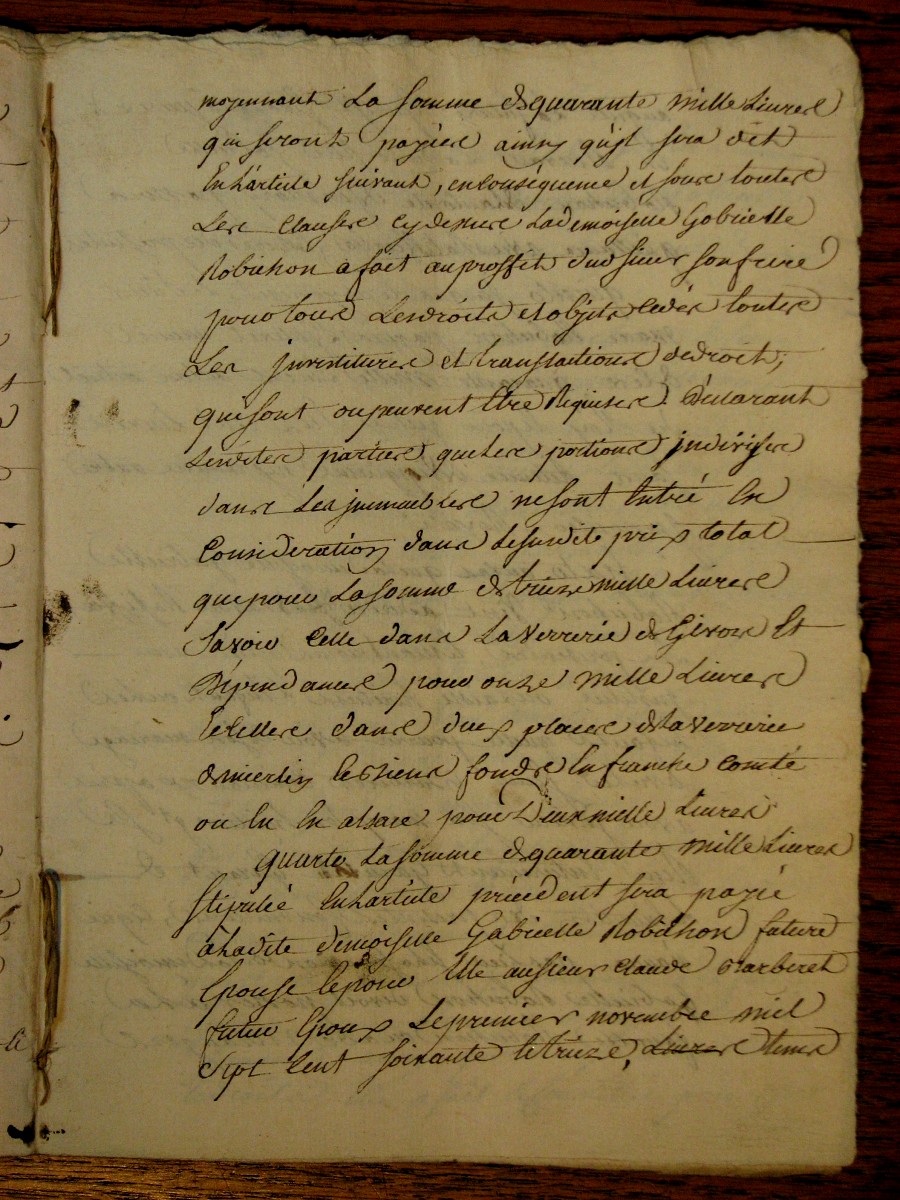 moyennant La somme de quarante mille Livres
qui seront payées ainsy qu'il sera dit
En l'article suivant, en conséquence et sous toutes
Les clauses cy dessus La demoiselle Gabrielle
Robichon a fait au proffit dud sieur son frere
pour tous Lesdroits et objets cédés toutes
Les jnvestitures et translations de droit,
qui sont ou peuvent être Requises. Déclarant
Lesdites parties que les portions jndivises
dans Les jmmeubles ne sont Entré En
Considération dans Lesusdite prix total
que pour La somme de treize mille Livres
Savoir Celle dans La Verrerie de Givors Et
Dépendances pour onze mille Livres
Et celles dans deux places de la verrerie
de miellin Les sieux fonds En franche comté
ou En En alsace pour Deux mille Livres
quarto La somme de quarante mille Livres
Stipulée En l'article précédent sera payée
à la dite demoiselle Gabrielle Robichon future
Epouse Et pour Elle au sieur claude Barberet
futur Epoux Le premier novembre mil
Sept Cent soixante Et treize, Livres tems